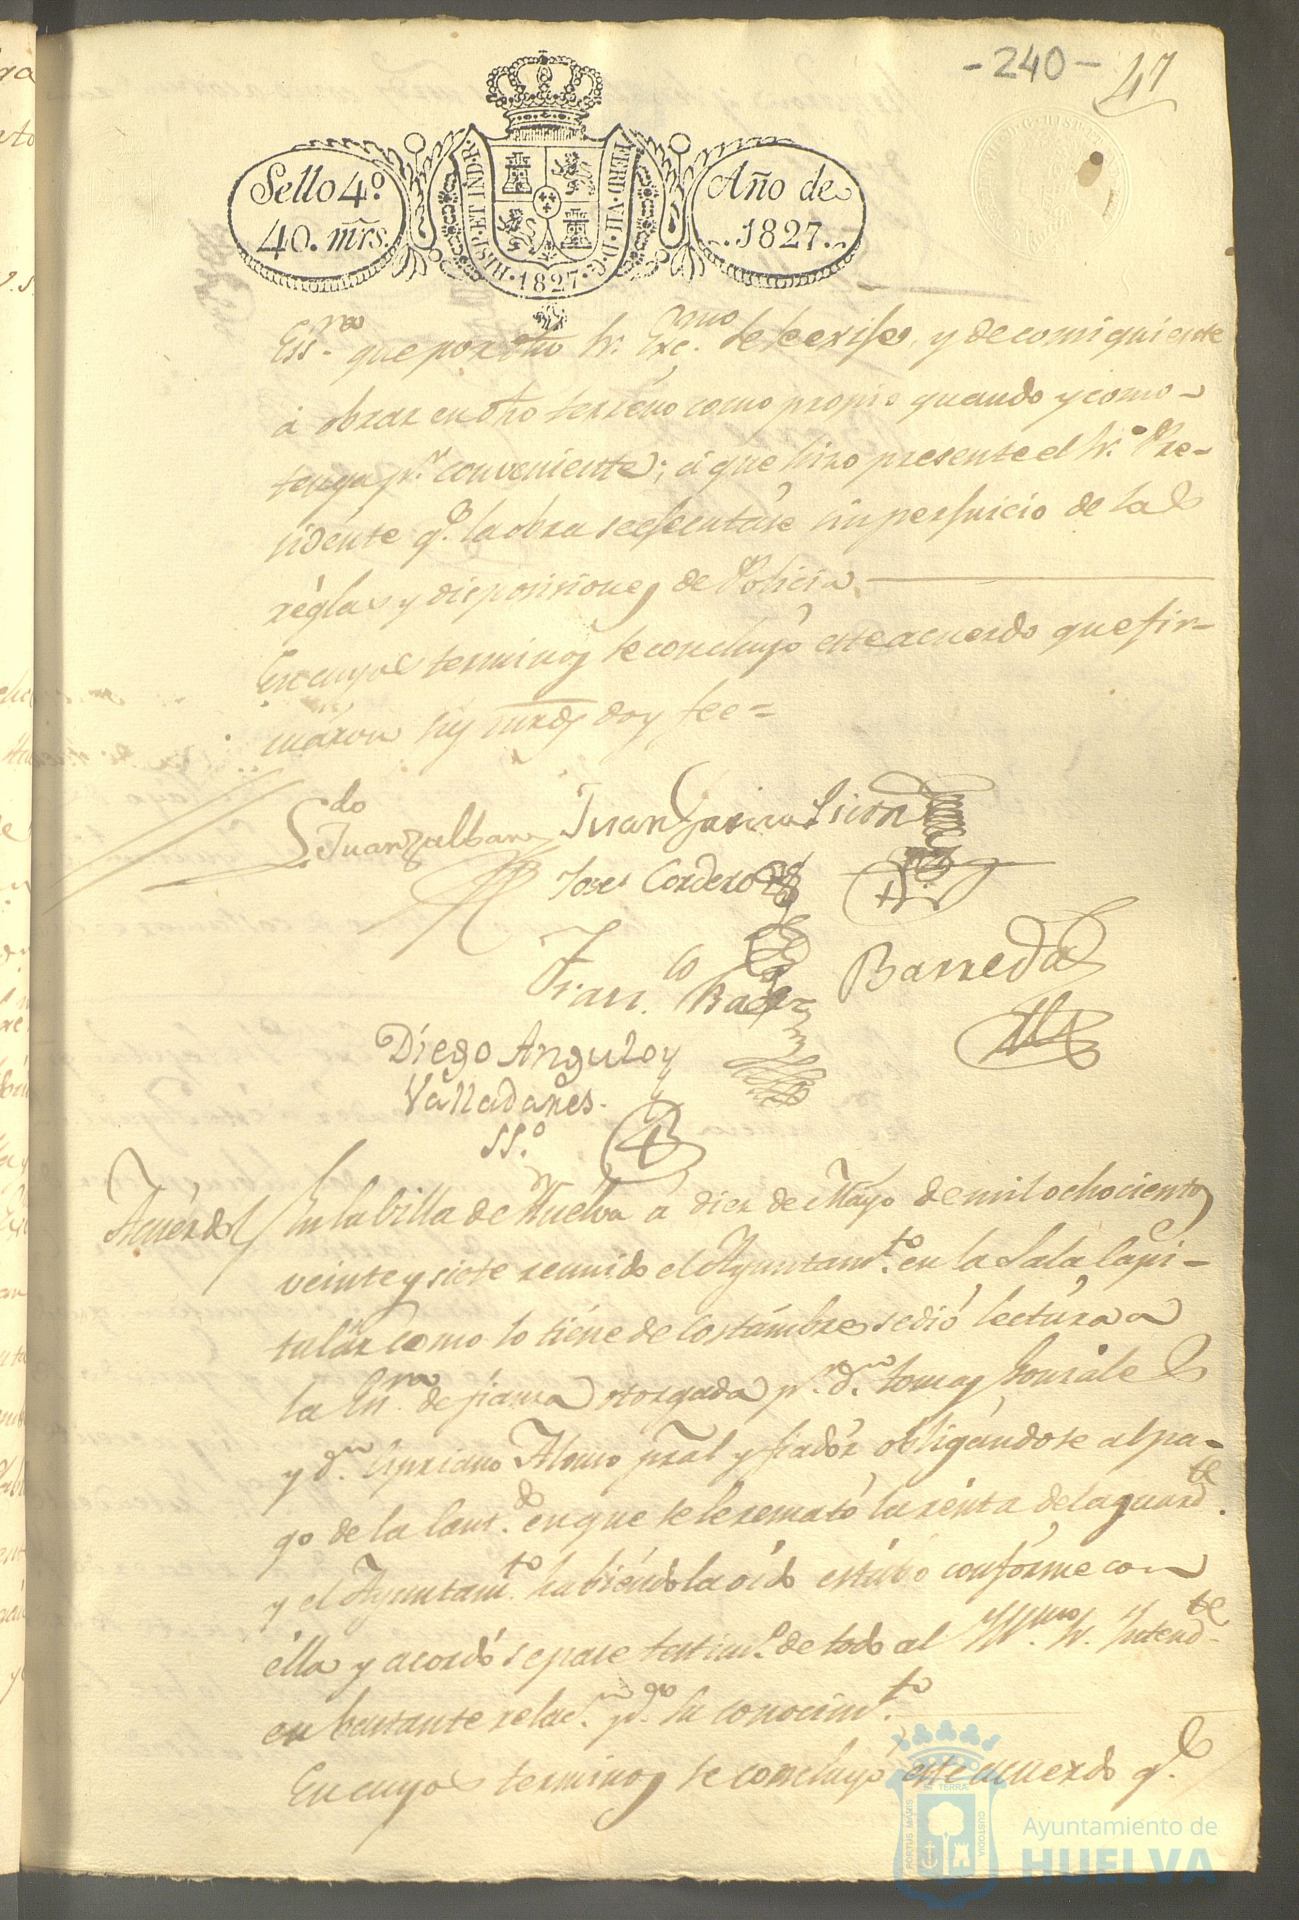 -240- 47
Sello 4º
40. mrs.
HISP. ET IND. R.
FERD. VII. D. G.
1827
Año de
1827.
Essno. que por dho Sr. Excmo. se le exije, y de consiguiente
á obrar en dho terreno como propio quando y como
tenga pr. conveniente; á que hizo presente el Sr. Pre-
sidente q. la obra se ejecutase sin perjuicio de las
réglas y disposisiones de Policia.
En cuyos terminos se concluyó este acuerdo que fir-
máron sus mrds doy fee =
Ldo Juan Zalbana Juan Garcia
Jose Cordero
Franco. Baez Barreda
Diego Anguloy
Valladares.
SSº.
Acuerdo En la billa de Huelva a diez de Mayo de mil ochocientos
veinte y siete reunido el Ayuntamto. en la Sala Capi-
tular como lo tiéne de costumbre se dió lectúra a
la Essra. de fianza otorgada pr. dn. Tomas Gonzales
y dn. Cipriano Alonso pral y fiadór obligándose al pa-
go de la cantd. en que se le remató la rénta del aguardte.
y el Ayuntamto. habiéndola oido estúbo confórme con
élla y acordó se pase testimo. de todo al Sr. Intendte.
en bastante relacn. pa. su conocimto.
En cuyos terminos se concluyó este acuerdo q.
PORTUS MARIS ET TERRAE CUSTODIA
Ayuntamiento de
HUELVA